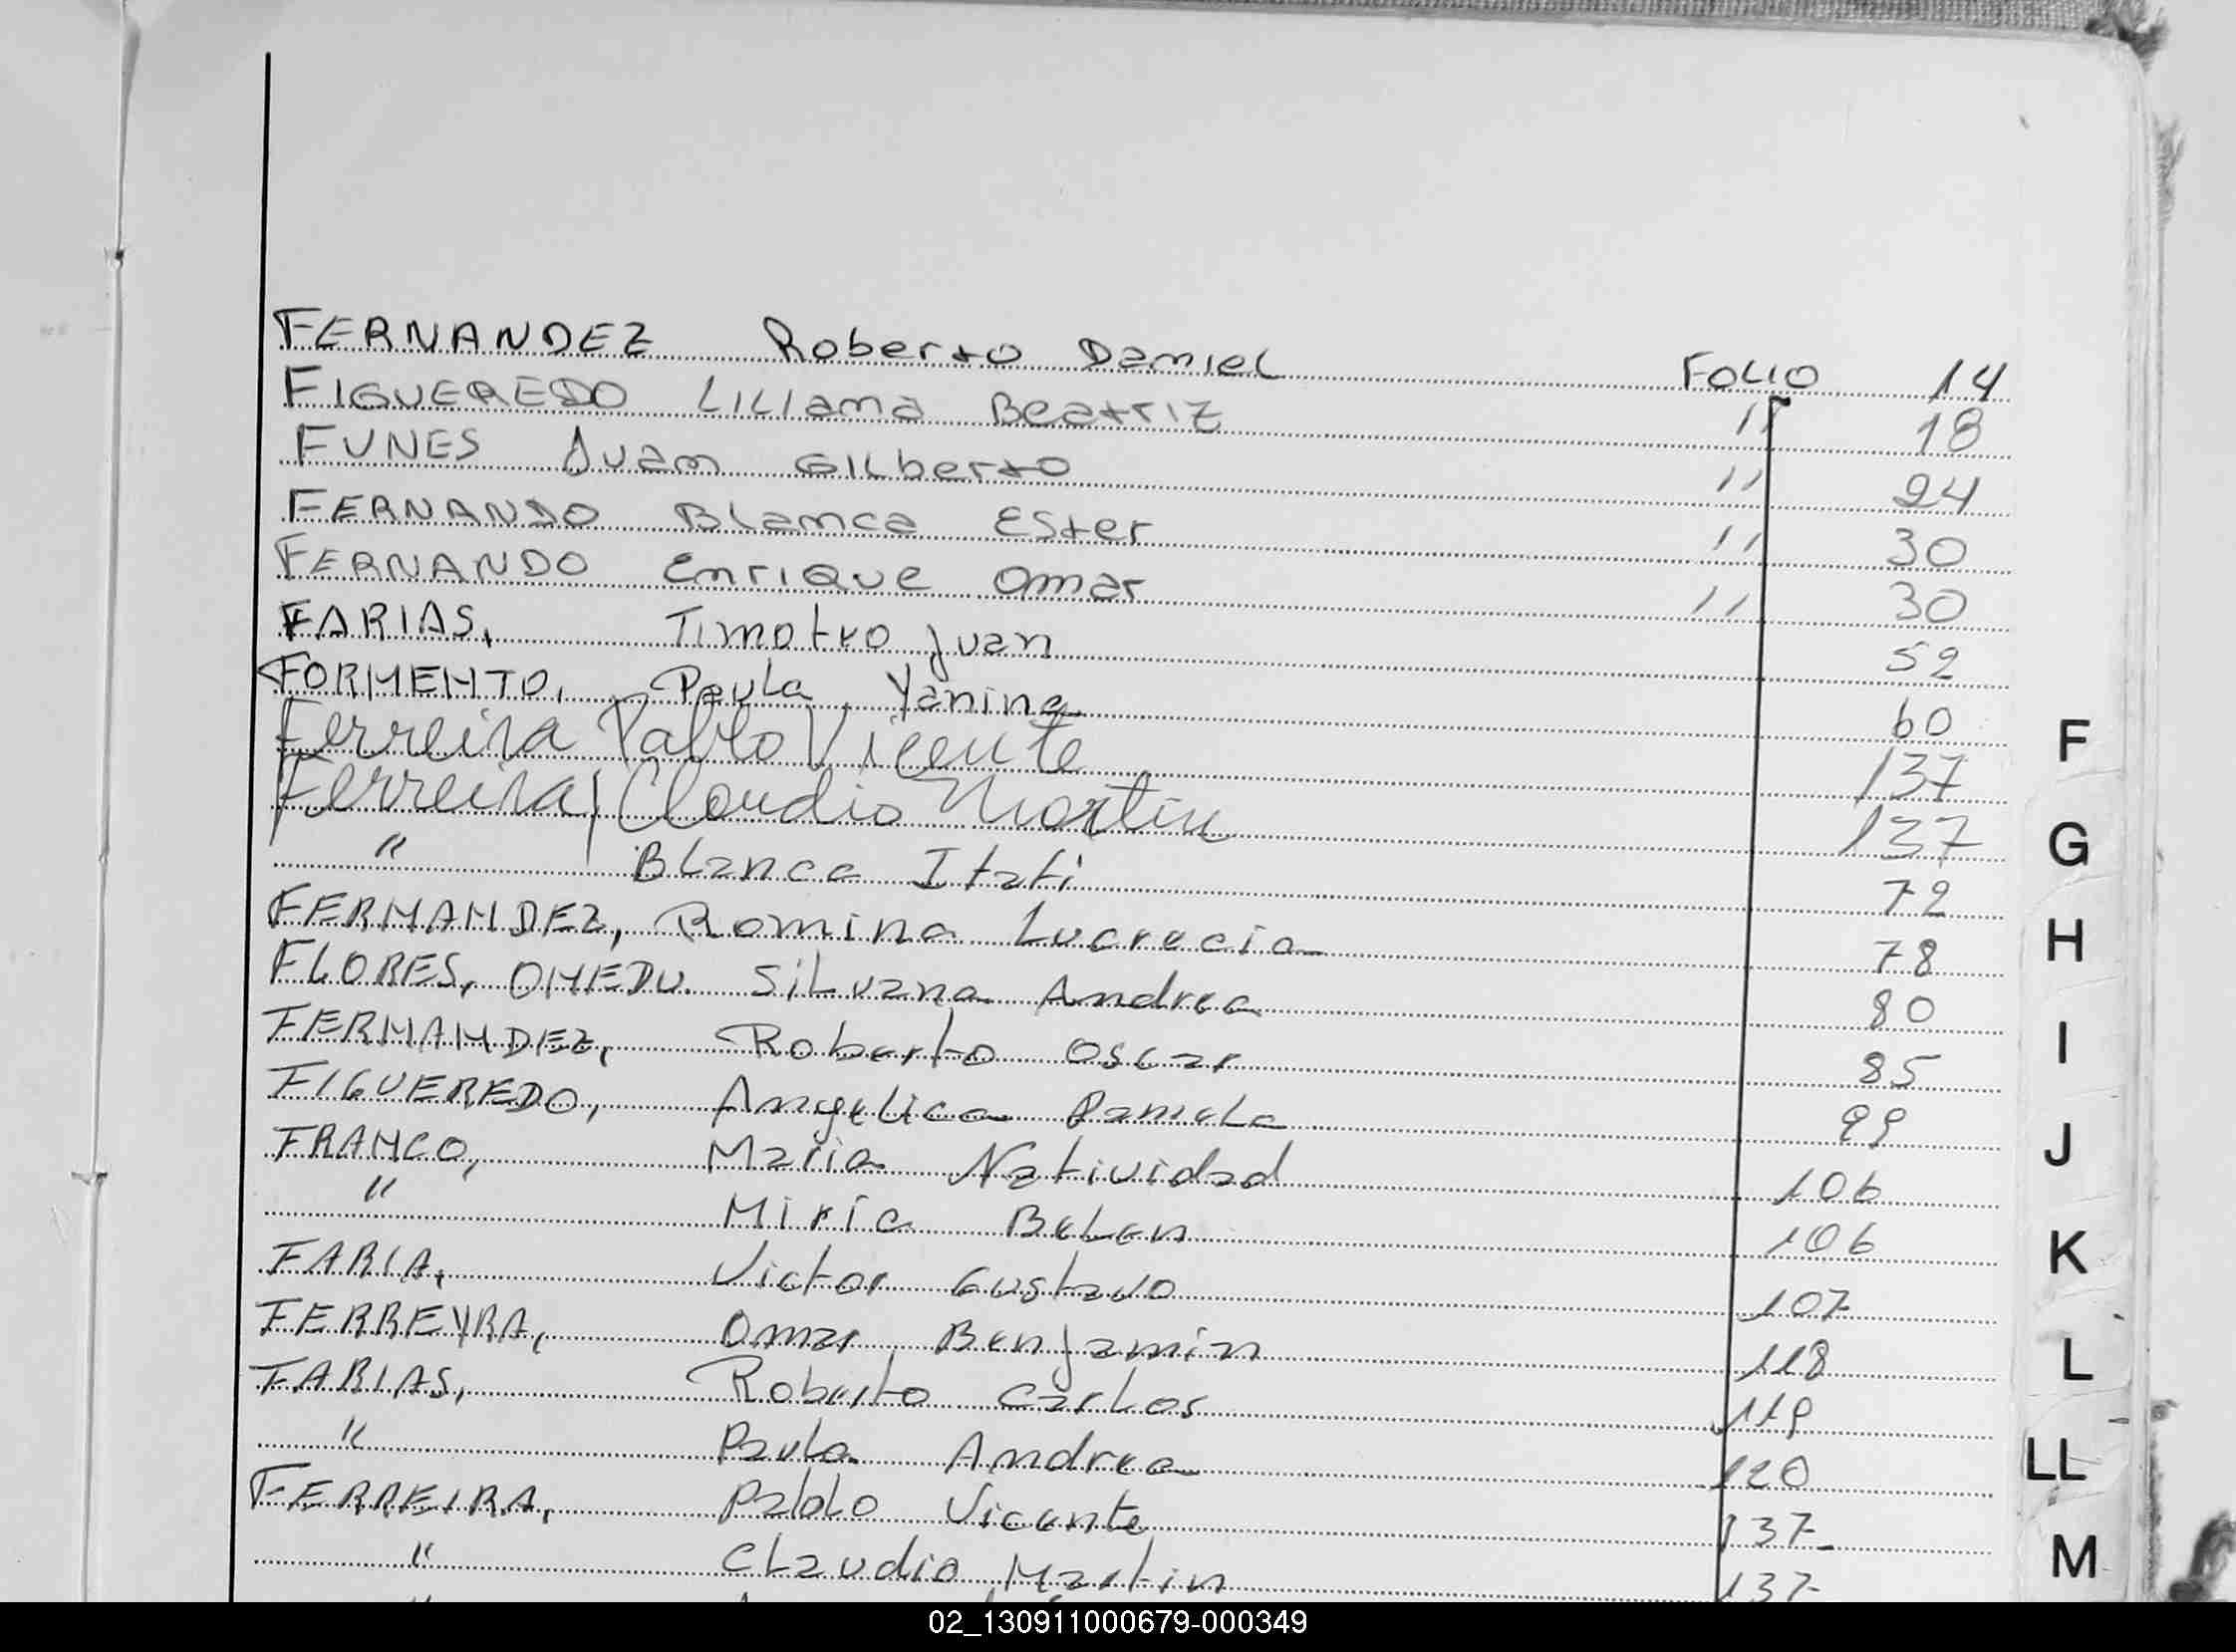 FERNANDEZ Roberto Daniel FOLIO 14
FIGUEREDO Liliana Beatriz " 18
FUNES Juan Gilberto " 24
FERNANDO Blanca Ester " 30
FERNANDO Enrique Omar " 30
FARIAS, Timoteo Juan 52
FORMENTO, Paula Yanina 60
Ferreira Pablo Vicente 137
Ferreira Claudio Martin 137
" Blanca Itati 72
FERNANDEZ, Romina Lucrecia 78
FLORES, OMEDU. Silvana Andrea 80
FERNANDEZ, Roberto Oscar 85
FIGUEREDO, Angelica Pamela 99
FRANCO, Maria Natividad 106
" Miria Belen 106
FARIA, Victor Gustavo 107
FERREYRA, Omar Benjamin 118
FARIAS, Roberto Carlos 119
" Paula Andrea 120
FERREIRA, Pablo Vicente 137
" Claudio Martin 137
F
G
H
I
J
K
L
LL
M
02_130911000679-000349